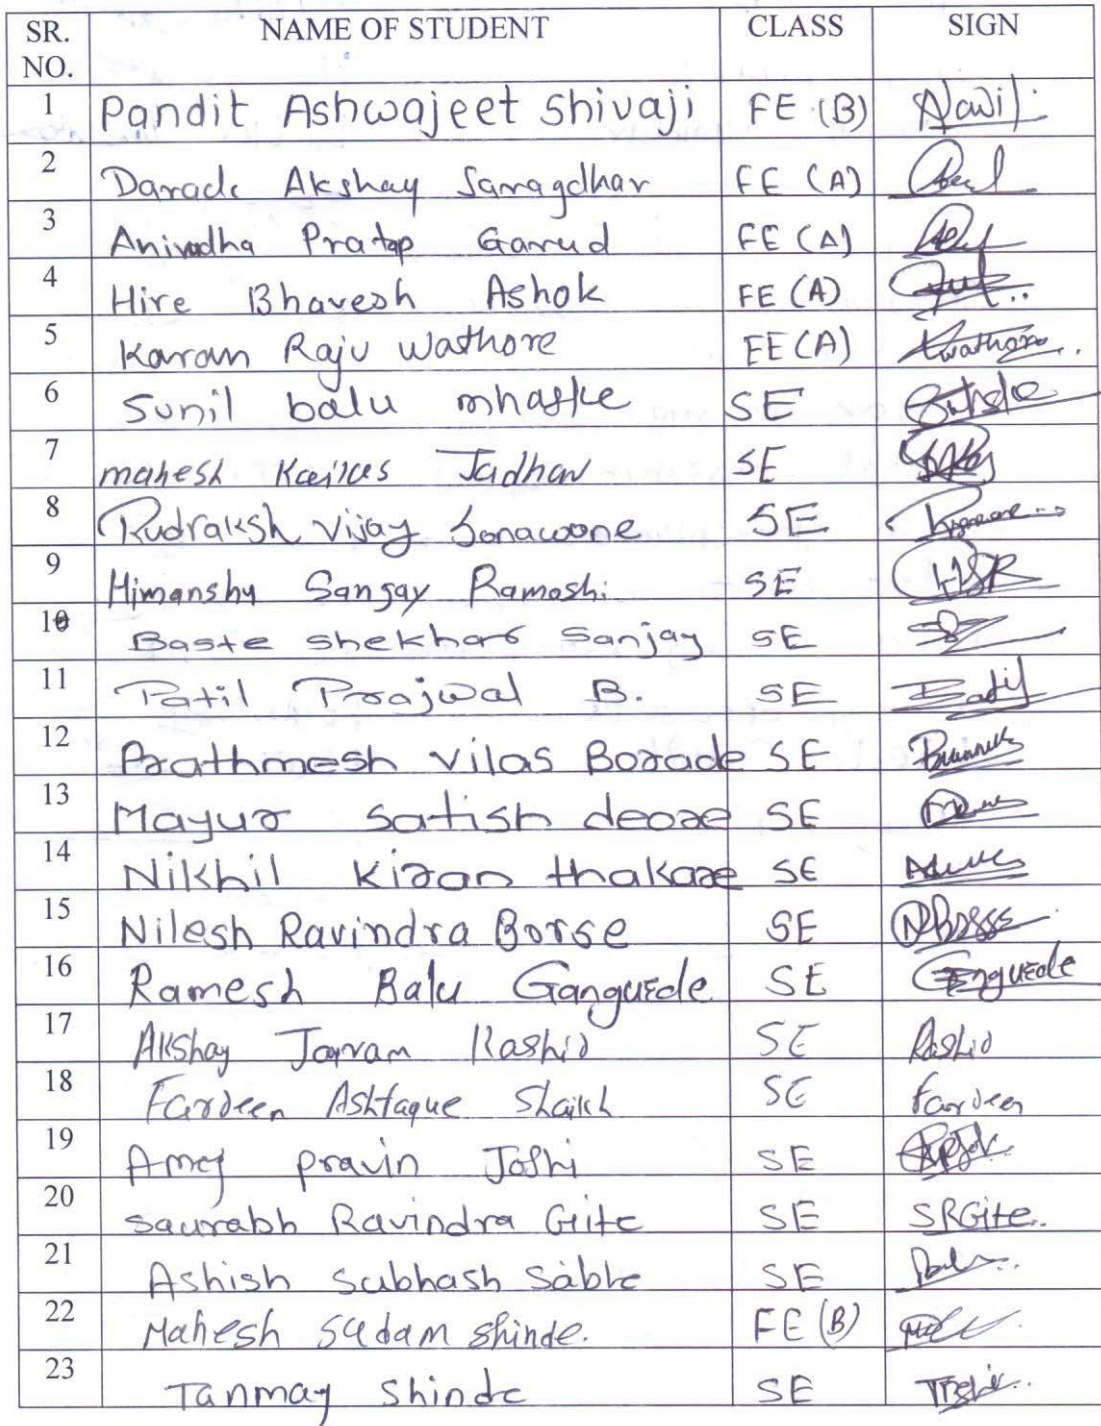 SR. NO. NAME OF STUDENT CLASS SIGN
1 Pandit Ashwajeet Shivaji FE (B)
2 Darade Akshay Sarragdhar FE (A)
3 Anirudha Pratap Garud FE (A)
4 Hire Bhavesh Ashok FE (A)
5 Karan Raju Wathore FE (A) Kwathore
6 Sunil balu mhaske SE
7 mahesh Kailas Jadhav SE
8 Rudraksh Vijay Sonawane SE
9 Himanshu Sanjay Ramoshi SE HSR
10 Baste Shekhar Sanjay SE
11 Patil Prajwal B. SE
12 Prathmesh Vilas Borade SE
13 Mayur Satish deore SE
14 Nikhil Kiran thakare SE
15 Nilesh Ravindra Borse SE
16 Ramesh Balu Gangurde SE Gangurde
17 Akshay Jayram Kashid SE Kashid
18 Fardeen Ashfaque Shaikh SE Fardeen
19 Amey pravin Joshi SE
20 Saurabh Ravindra Gite SE SRGite..
21 Ashish Subhash Sable SE
22 Mahesh Sudam Shinde. FE (B)
23 Tanmay Shinde SE